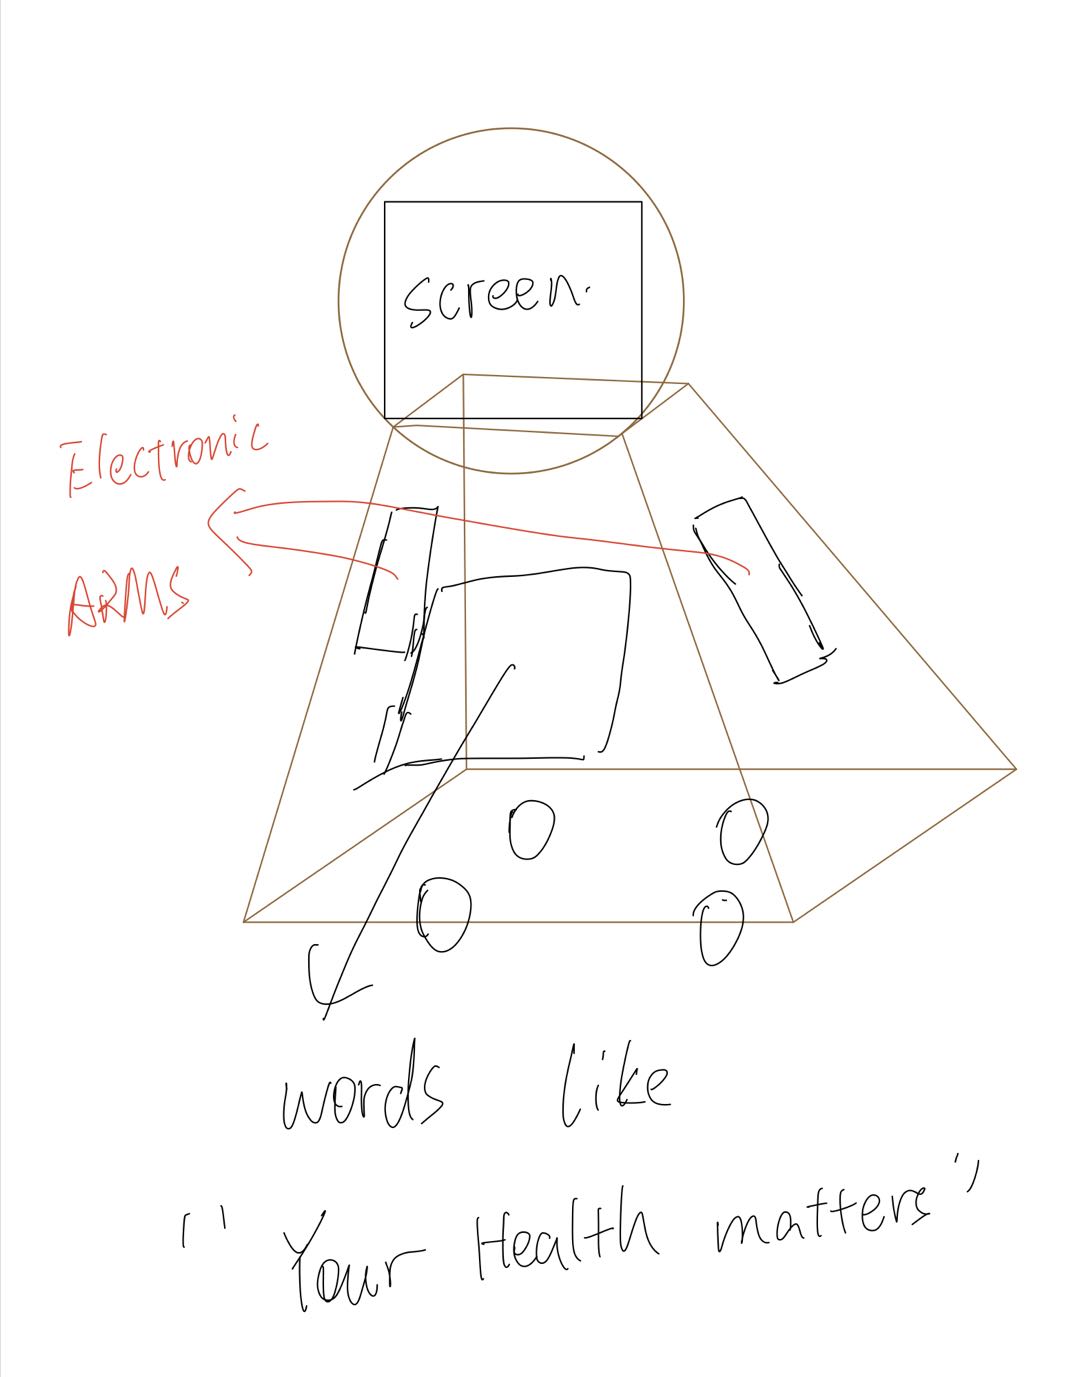 screen.
Electronic
ARMS
words like
"Your Health matters"